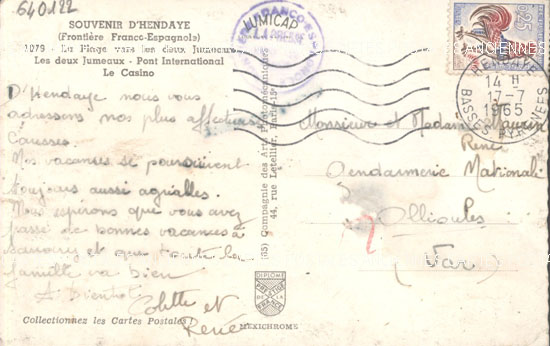 640122
SOUVENIR D'HENDAYE
(Frontière Franco-Espagnole)
1079 - La Plage vers les deux Jumeaux
Les deux Jumeaux - Pont International
Le Casino
LUMICAP
0,25
HENDAYE
14 H
17-7
1965
BASSES PYRENEES
D'Hendaye nous vous
adressons nos plus affectueuses
Causses.
Nos vacances se poursuivent
toujours aussi agréables.
Nous espérons que vous avez
passé de bonnes vacances à
et que toute la
famille va bien
A Bientôt
Colette et
René
Collectionnez les Cartes Postales !
(65) Compagnie des Arts Photomécaniques
44, rue Letellier, Paris-15e
DIPLOME
PRESTIGE
DE LA
FRANCE
MEXICHROME
Monsieur et Madame
René
Gendarmerie Nationale
Ollioules
(Var)